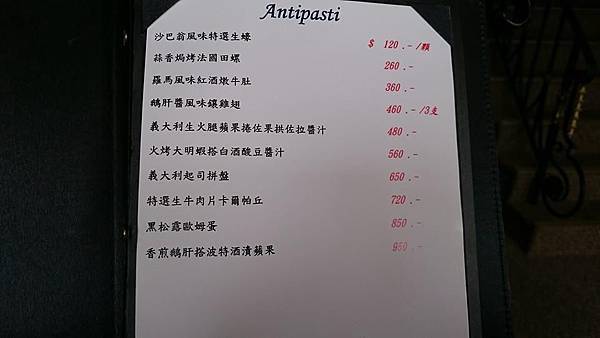 Antipasti
沙巴翁風味特選生蠔 $ 120.-/顆
蒜香焗烤法國田螺 260.-
羅馬風味紅酒燉牛肚 360.-
鵝肝醬風味鑲雞翅 460.-/3支
義大利生火腿蘋果捲佐果拱佐拉醬汁 480.-
火烤大明蝦搭白酒酸豆醬汁 560.-
義大利起司拼盤 650.-
特選生牛肉片卡爾帕丘 720.-
黑松露歐姆蛋 850.-
香煎鵝肝搭波特酒漬蘋果 950.-